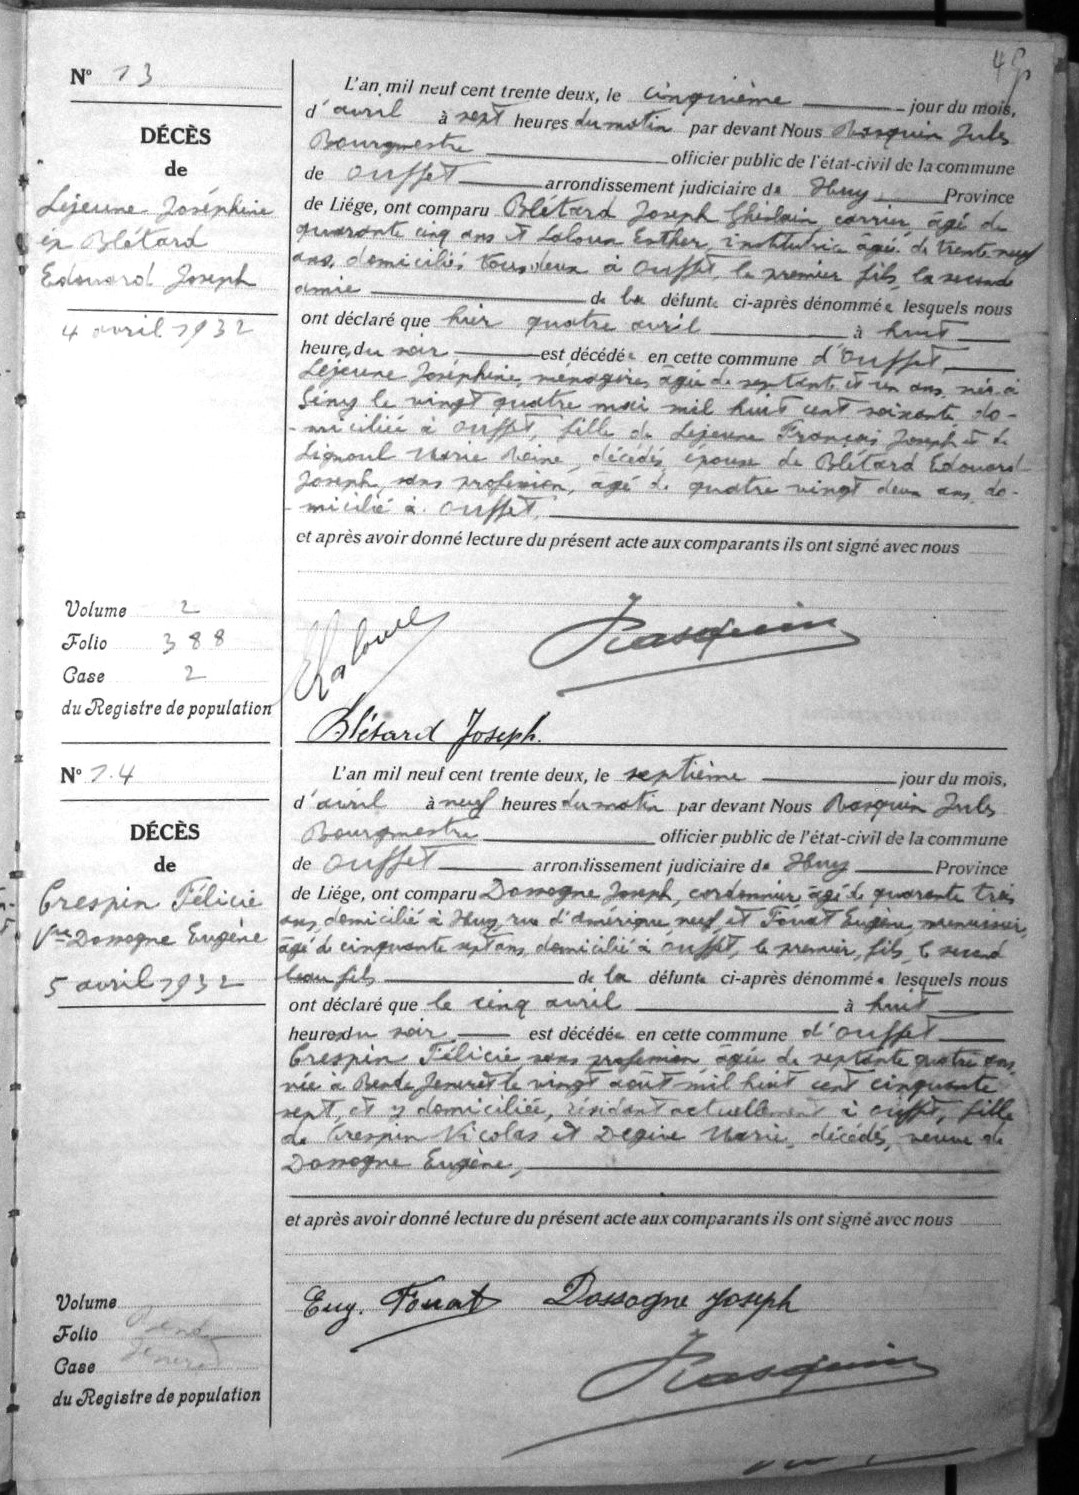 N° 13
DÉCÈS
de
Lejeune Joséphine
ép Blétard
Edouard Joseph
4 avril 1932
Volume 2
Folio 388
Case 2
du Registre de population
L'an mil neuf cent trente deux, le cinquième jour du mois,
d'avril à sept heures du matin par devant Nous Rasquin Jules
Bourgmestre officier public de l'état-civil de la commune
de Ouffet arrondissement judiciaire de Huy Province
de Liége, ont comparu Blétard Joseph Ghislain, carrier, âgé de
quarante cinq ans et Laloux Esther, institutrice âgée de trente neuf
ans, domiciliés tous deux à Ouffet, le premier fils, la seconde
amie de la défunte ci-après dénommée lesquels nous
ont déclaré que hier quatre avril à huit
heures du soir est décédée en cette commune d'Ouffet
Lejeune Joséphine, ménagère, âgée de septante et un ans, née à
Seny le vingt quatre mai mil huit cent soixante, do-
-miciliée à Ouffet, fille de Lejeune François Joseph et de
Lignoul Marie Reine, décédés, épouse de Blétard Edouard
Joseph, sans profession, âgé de quatre vingt deux ans, do-
-micilié à Ouffet.
et après avoir donné lecture du présent acte aux comparants ils ont signé avec nous
ELaloux
Rasquin
Blétard Joseph.
N° 14
DÉCÈS
de
Crespin Félicie
Vve Dossogne Eugène
5 avril 1932
Volume
Folio
Case
du Registre de population
Bende
Jeneret
L'an mil neuf cent trente deux, le septième jour du mois,
d'avril à neuf heures du matin par devant Nous Rasquin Jules
Bourgmestre officier public de l'état-civil de la commune
de Ouffet arrondissement judiciaire de Huy Province
de Liége, ont comparu Dossogne Joseph, cordonnier, âgé de quarante trois
ans, domicilié à Huy, rue d'Amérique, neuf, et Fouat Eugène, menuisier,
âgé de cinquante sept ans, domicilié à Ouffet, le premier, fils, le second
beau fils de la défunte ci-après dénommée lesquels nous
ont déclaré que le cinq avril à huit
heures du soir est décédée en cette commune d'Ouffet
Crespin Félicie, sans profession, âgée de septante quatre ans,
née à Bende Jeneret le vingt août mil huit cent cinquante
sept, et y domiciliée, résidant actuellement à Ouffet, fille
de Crespin Nicolas et Marie, décédés, veuve de
Dossogne Eugène,
et après avoir donné lecture du présent acte aux comparants ils ont signé avec nous
Eug. Fouat Dossogne Joseph
Rasquin